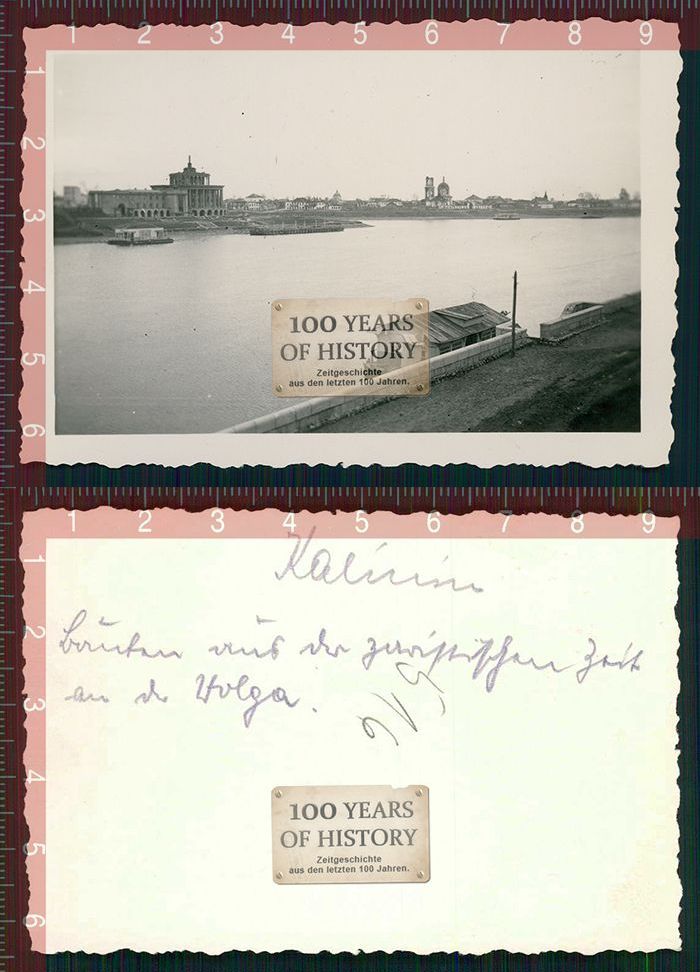 1 2 3 4 5 6 7 8 9
1
2
3
4
5
6
100 YEARS
OF HISTORY
Zeitgeschichte
aus den letzten 100 Jahren.
1 2 3 4 5 6 7 8 9
1
2
3
4
5
6
Kalinin
Bauten aus der zaristischen Zeit
an der Wolga.
100 YEARS
OF HISTORY
Zeitgeschichte
aus den letzten 100 Jahren.